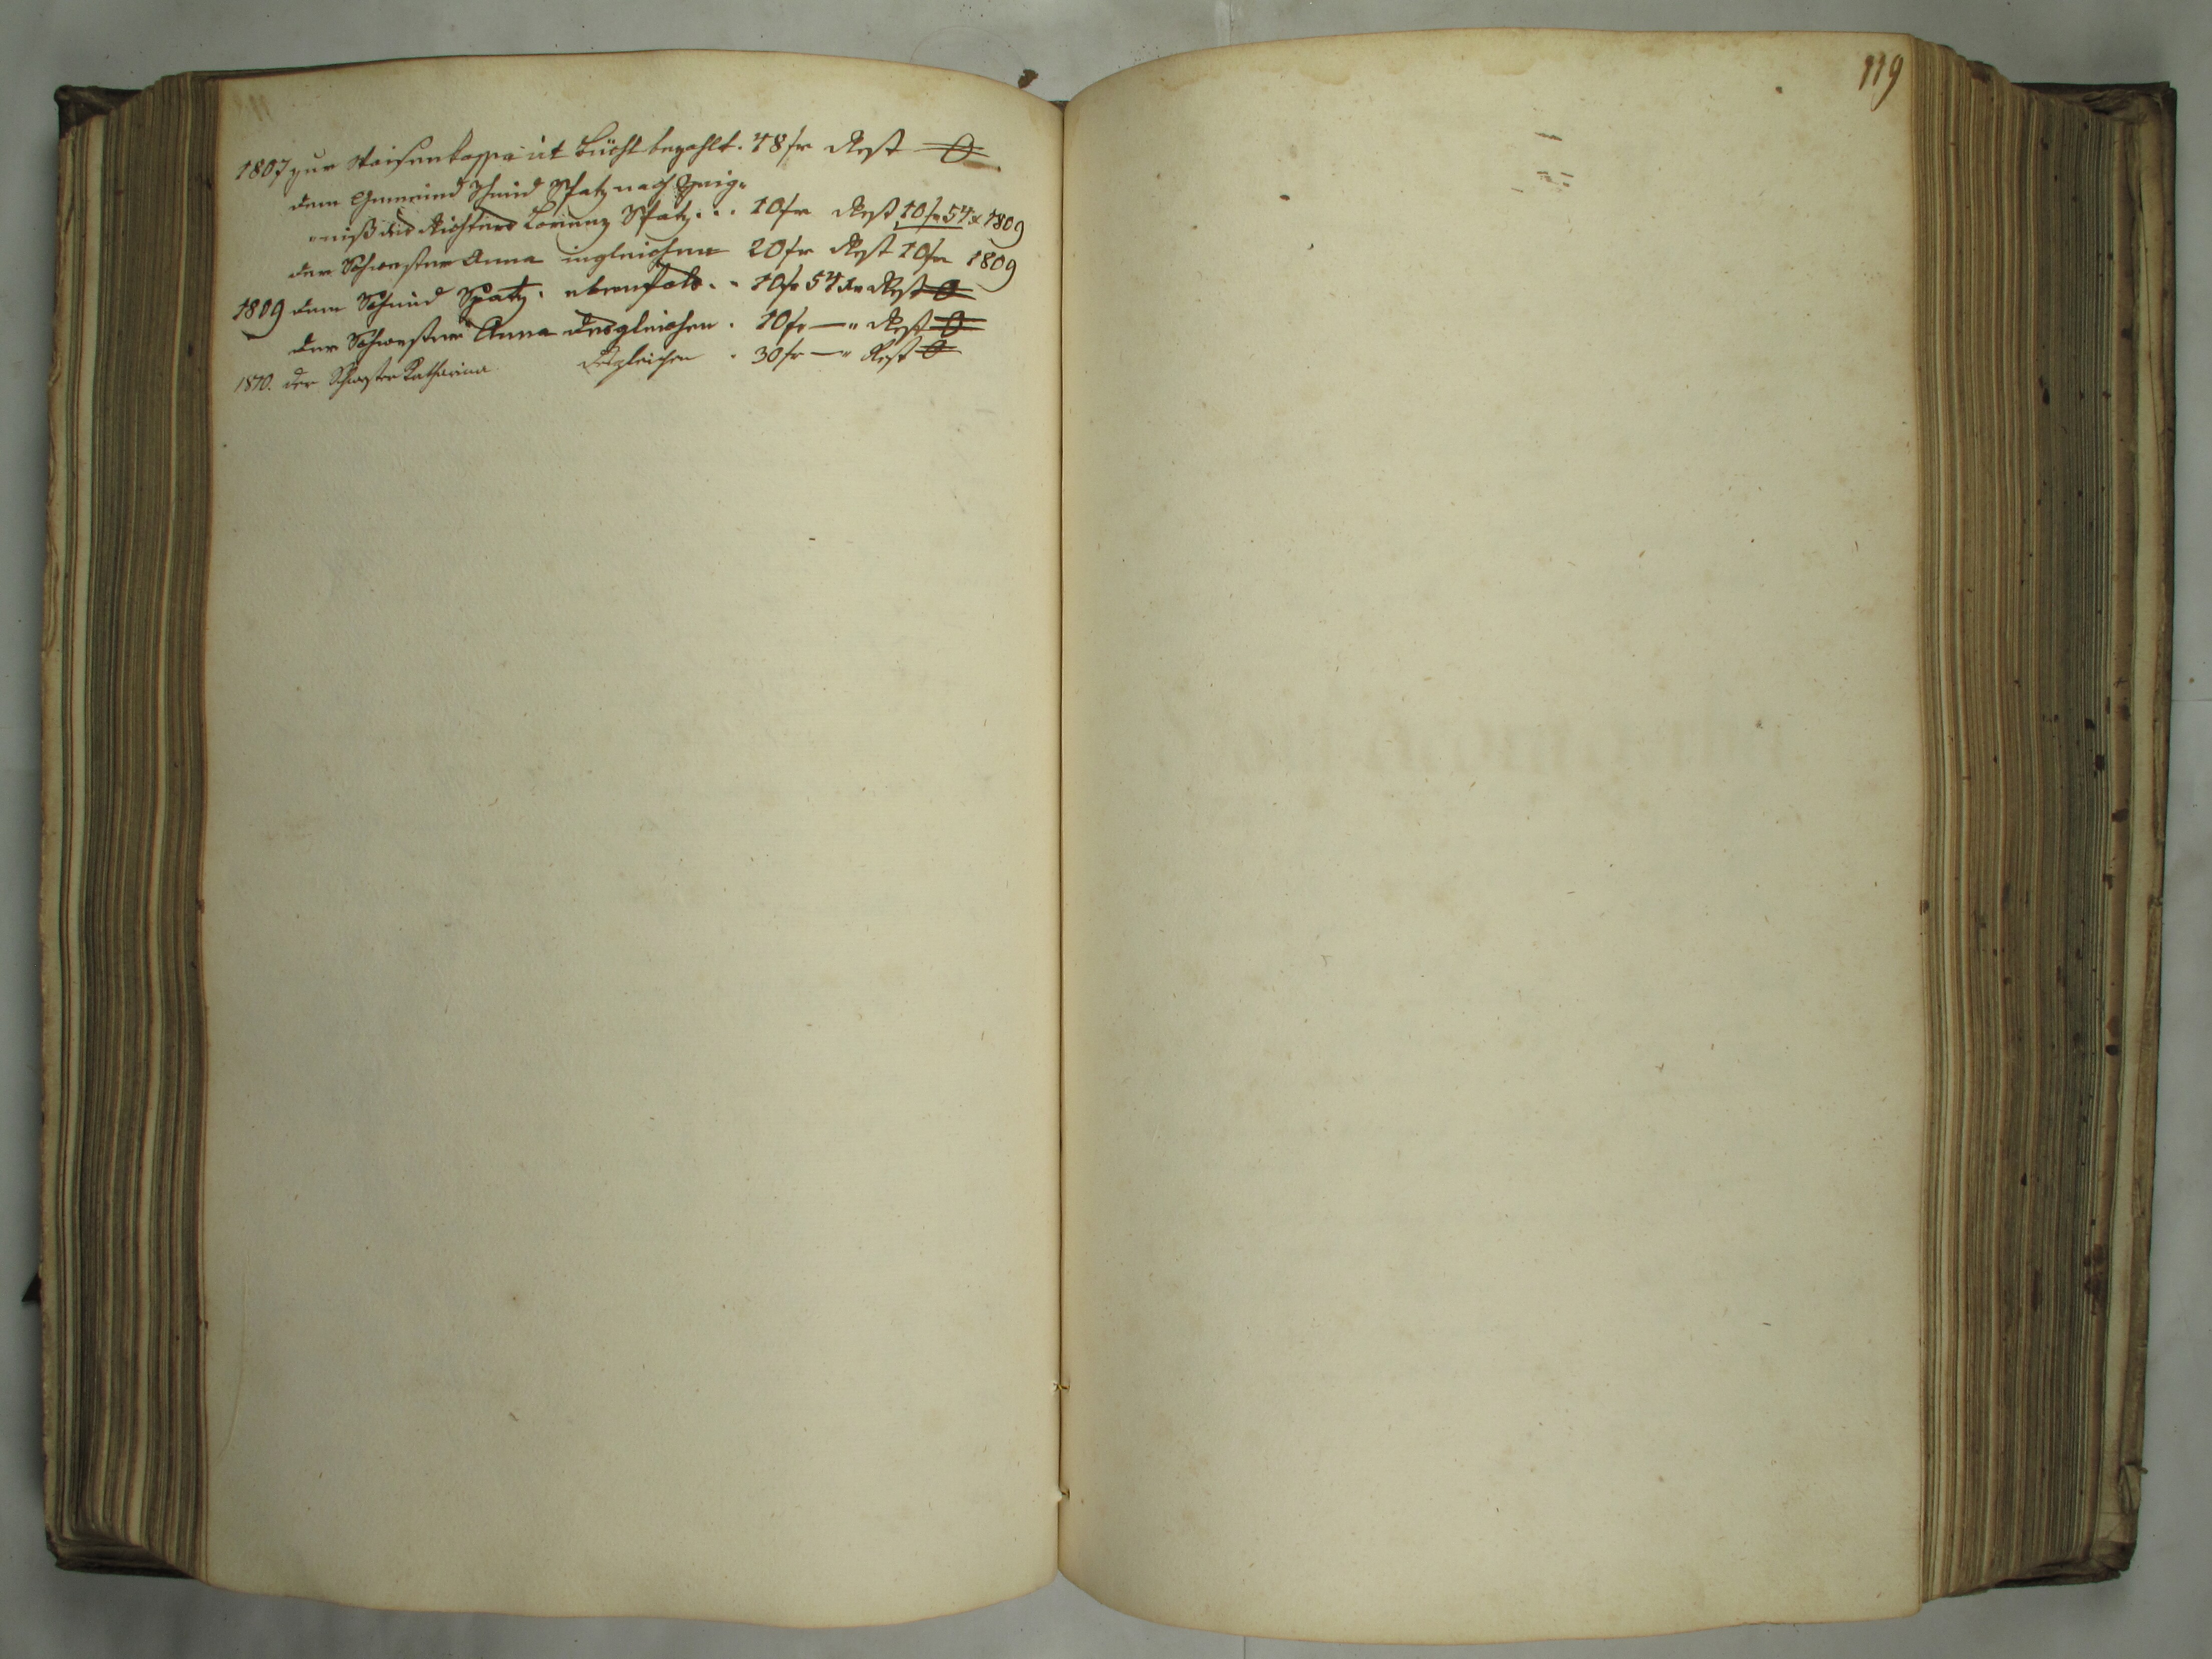 1807 zur Waisenkassa ut Büchl bezahlt. 48 fr Rest 0
dem Gemeind Schmid Spatz nach Zeig-
niß des Richters Lorenz Spatz... 10 fr Rest 10 fr 54 x 1809
der Schwester Anna ingleichen 20 fr Rest 10 fr 1809
1809 dem Schmid Spatz. ebenfals.. 10 fr 54 xr Rest 0
der Schwester Anna desgleichen. 10 fr — " Rest 0
1810. der Schwester Katharina desgleichen. 30 fr — " Rest 0
119